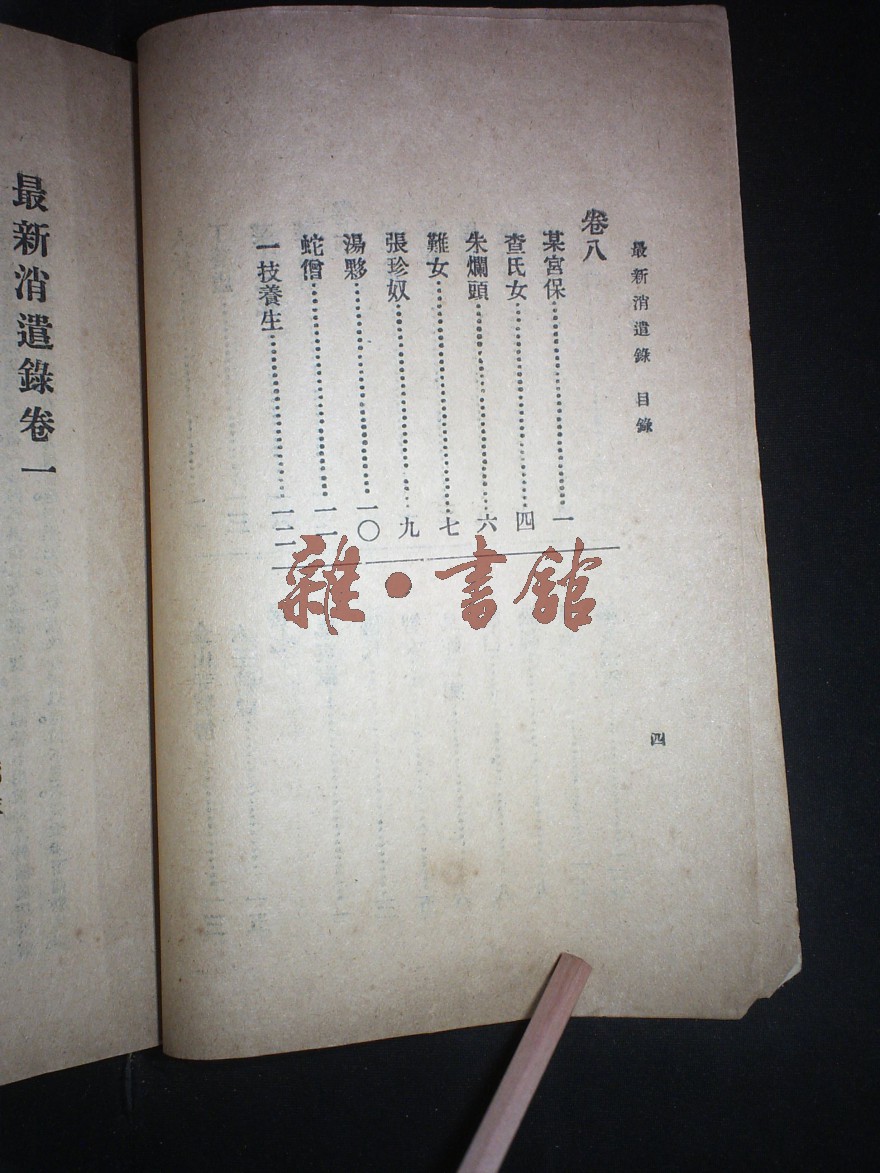 最新消遣錄 目錄
四
卷八
某宮保……一
查氏女……四
朱爛頭……六
難女……七
張珍奴……九
湯夥……一〇
蛇僧……一一
一技養生……一二
雜•書館
最新消遣錄卷一